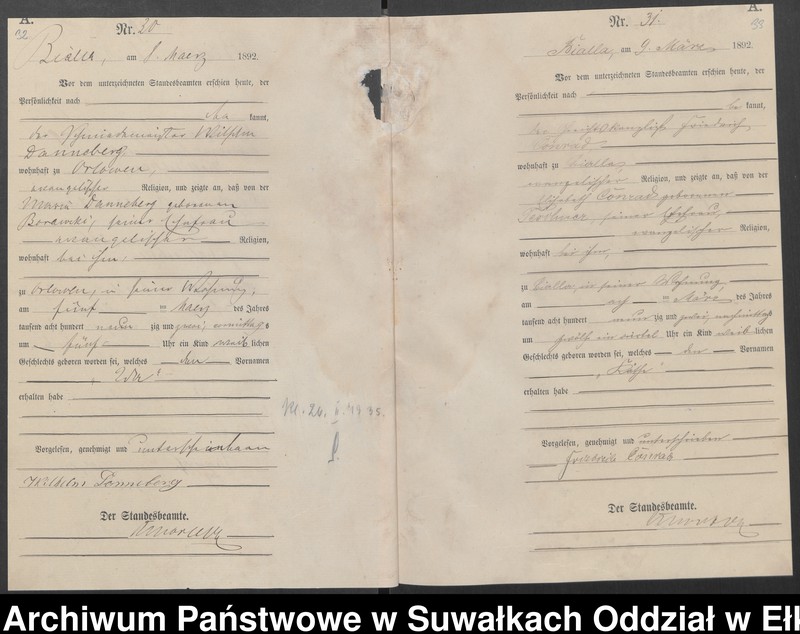 A.
32
Nr. 20
Bialla, am 8. Maerz 1892
Vor dem unterzeichneten Standesbeamten erschien heute, der
Persönlichkeit nach
be kannt,
der Schmiedemeister Wilhelm
Danneberg
wohnhaft zu Orlowen,
evangelischer Religion, und zeigte an, daß von der
Marie Danneberg geborenen
Borawski, seiner Ehefrau
evangelischer Religion,
wohnhaft bei ihm,
zu Orlowen, in seiner Wohnung,
am fünf ten Maerz des Jahres
tausend acht hundert neun zig und zwei, vormittags
um fünf Uhr ein Kind weib lichen
Geschlechts geboren worden sei, welches den Vornamen
erhalten habe
Vorgelesen, genehmigt und unterschrieben
Wilhelm Danneberg
Der Standesbeamte.
A.
33
Nr. 31.
Bialla, am 9. März 1892.
Vor dem unterzeichneten Standesbeamten erschien heute, der
Persönlichkeit nach
be kannt,
der Friedrich
Conrad
wohnhaft zu Bialla,
evangelischer Religion, und zeigte an, daß von der
Conrad geborenen
seiner Ehefrau,
evangelischer Religion,
wohnhaft bei ihm,
zu Bialla, in seiner Wohnung,
am ach ten März des Jahres
tausend acht hundert neun zig und zwei, nachmittags
um zwölf ein viertel Uhr ein Kind weib lichen
Geschlechts geboren worden sei, welches den Vornamen
„Käthe“
erhalten habe
Vorgelesen, genehmigt und unterschrieben
Friedrich Conrad
Der Standesbeamte.
Archiwum Państwowe w Suwałkach Oddział w Ełk